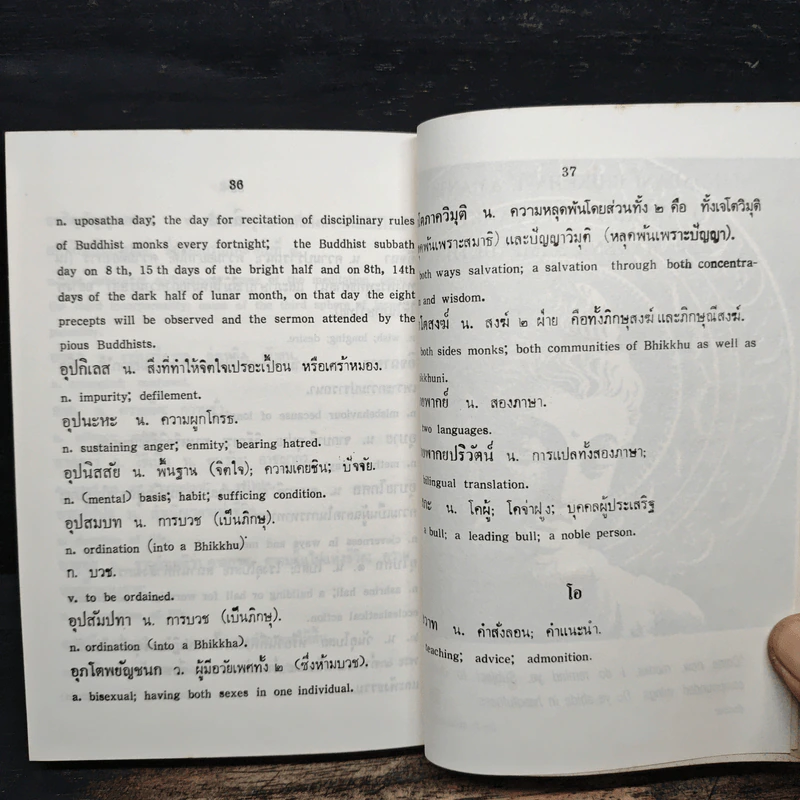 36
n. uposatha day; the day for recitation of disciplinary rules
of Buddhist monks every fortnight; the Buddhist subbath
day on 8 th, 15 th days of the bright half and on 8th, 14th
days of the dark half of lunar month, on that day the eight
precepts will be observed and the sermon attended by the
pious Buddhists.
อุปกิเลส น. สิ่งที่ทำให้จิตใจเปรอะเปื้อน หรือเศร้าหมอง.
n. impurity; defilement.
อุปนะหะ น. ความผูกโกรธ.
n. sustaining anger; enmity; bearing hatred.
อุปนิสสัย น. พื้นฐาน (จิตใจ); ความเคยชิน; ปัจจัย.
n. (mental) basis; habit; sufficing condition.
อุปสมบท น. การบวช (เป็นภิกษุ).
n. ordination (into a Bhikkhu)
ก. บวช.
v. to be ordained.
อุปสัมปทา น. การบวช (เป็นภิกษุ).
n. ordination (into a Bhikkha).
อุภโตพยัญชนก ว. ผู้มีอวัยเพศทั้ง ๒ (ซึ่งห้ามบวช).
a. bisexual; having both sexes in one individual.
37
โตภาควิมุติ น. ความหลุดพ้นโดยส่วนทั้ง ๒ คือ ทั้งเจโตวิมุติ
พ้นเพราะสมาธิ) และปัญญาวิมุติ (หลุดพ้นเพราะปัญญา).
both ways salvation; a salvation through both concentra-
and wisdom.
โตสงฆ์ น. สงฆ์ ๒ ฝ่าย คือทั้งภิกษุสงฆ์และภิกษุณีสงฆ์.
both sides monks; both communities of Bhikkhu as well as
kkhuni.
พากย์ น. สองภาษา.
two languages.
พากยปริวัตน์ น. การแปลทั้งสองภาษา;
bilingual translation.
น. โคผู้; โคจ่าฝูง; บุคคลผู้ประเสริฐ
a bull; a leading bull; a noble person.
โอ
วาท น. คำสั่งสอน; คำแนะนำ.
teaching; advice; admonition.